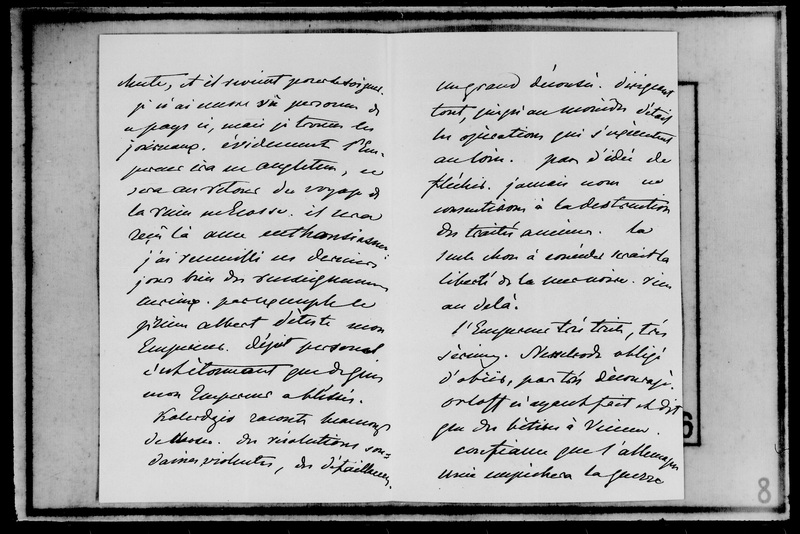 chute, et il revient pour le soigner.
je n'ai encore vu personne de
ce pays ci, mais je trouve les
journaux. évidemment l'Em-
pereur ira en angleterre, ce
sera au retour du voyage de
la reine en Ecosse. il sera
reçu là avec enthousiasme
j'ai recueilli ces derniers
jours bien des renseignemens
curieux. par exemple le
prince albert déteste mon
Empereur. dépit personnel
s'entêtement que depuis
mon Empereur a blessés.
Kalerdgis raconte beaucoup
de choses. des résolutions sou-
daines violentes, des défaillances,
un grand décousu. dirigeant
tout, jusqu'au moindre détail
les opérations qui s'exécutent
au loin. pas d'idée de
fléchir. jamais nous ne
consentirons à la destruction
des traités anciens. la
seule chose à concéder serait la
liberté de la mer noire. rien
au delà.
l'Empereur très triste, très
sérieux. Nesselrode obligé
d'obéir, par très découragé.
orloff n'ayant fait et dit
que des bêtises à Vienne.
confiance que l'allemagne
unie empêchera la guerre
6
8